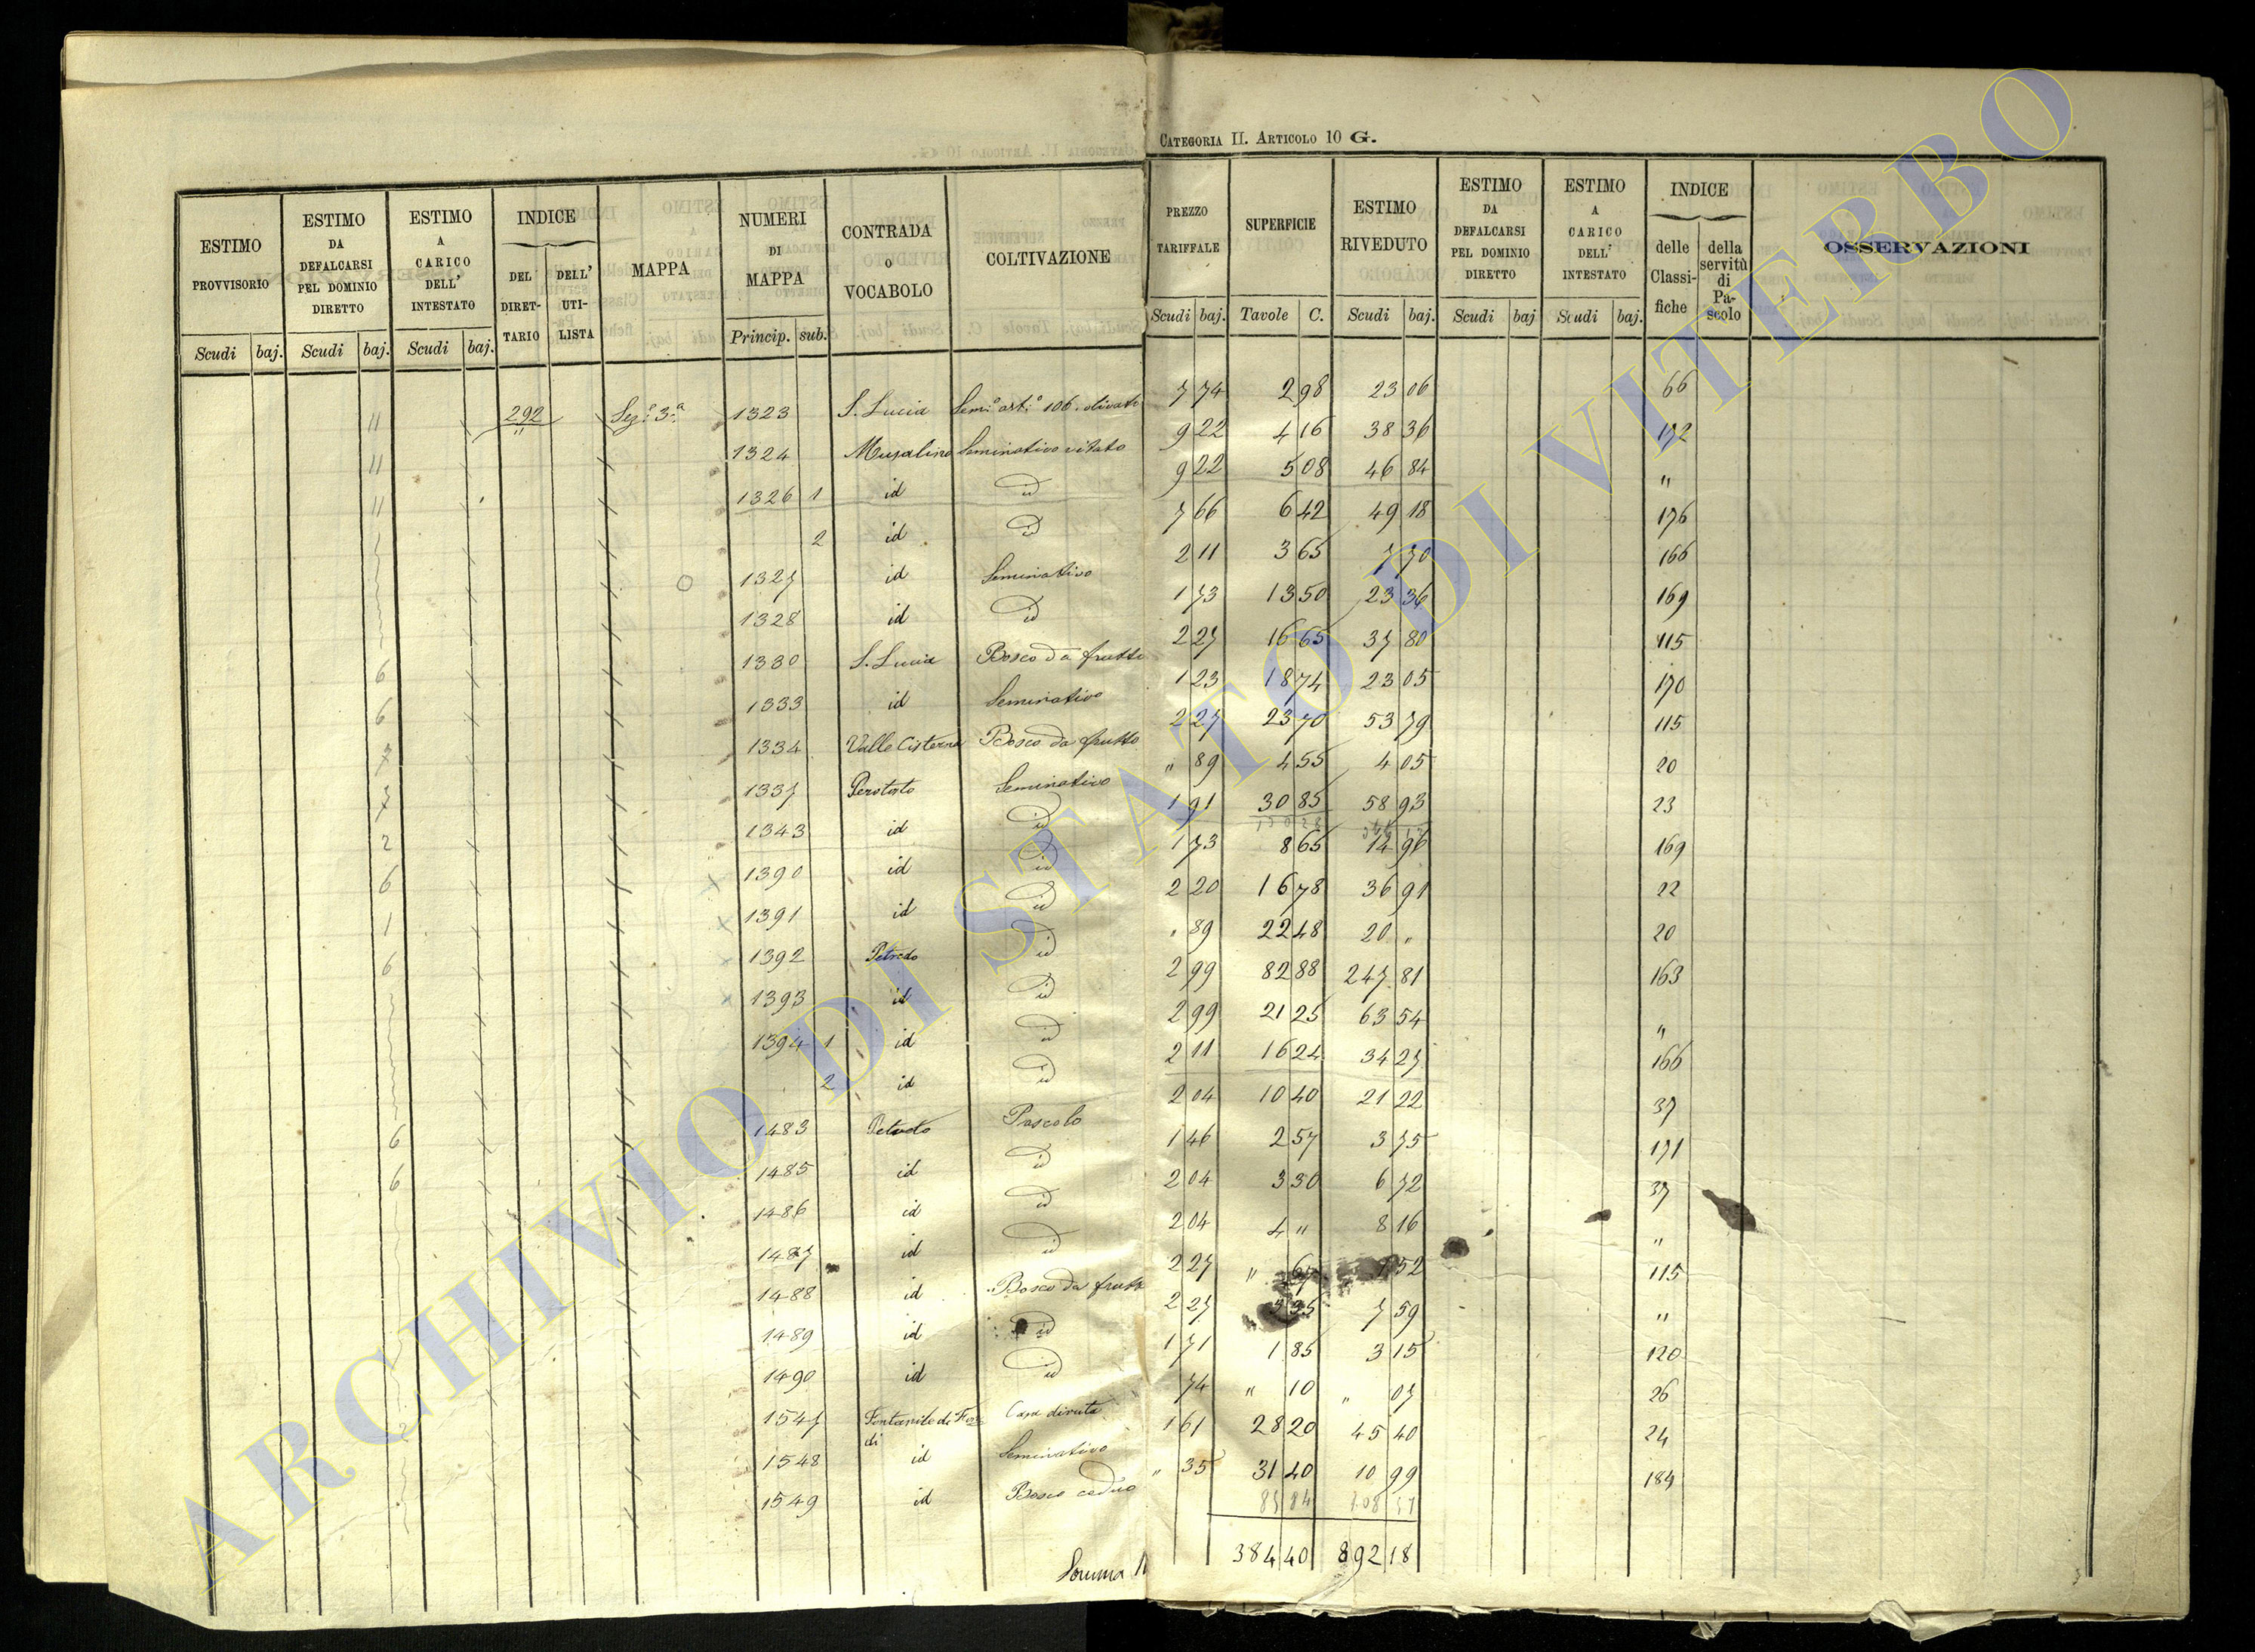 CATEGORIA II. ARTICOLO 10 G.
ESTIMO PROVVISORIO | ESTIMO DA DEFALCARSI PEL DOMINIO DIRETTO | ESTIMO A CARICO DELL' INTESTATO | INDICE DEL DIRETTARIO | DELL' UTILISTA | MAPPA | NUMERI DI MAPPA | CONTRADA O VOCABOLO | COLTIVAZIONE | PREZZO TARIFFALE | SUPERFICIE | ESTIMO RIVEDUTO | ESTIMO DA DEFALCARSI PEL DOMINIO DIRETTO | ESTIMO A CARICO DELL' INTESTATO | INDICE delle Classifiche | della servitù di Pascolo | OSSERVAZIONI
Scudi baj. Scudi baj. Scudi baj. Princip. sub. Scudi baj. Tavole C. Scudi baj. Scudi baj Scudi baj.
292 Sez.e 3.a 1323 S. Lucia Sem.o art.o 106. olivato 7 74 2 98 23 06 66
1324 Musalino Seminativo vitato 9 22 4 16 38 36 172
1326 1 id id 9 22 5 08 46 84 "
2 id id 7 66 6 42 49 18 176
1327 id Seminativo 2 11 3 65 7 70 166
1328 id id 1 73 13 50 23 36 169
1330 S. Lucia Bosco da frutto 2 27 16 65 37 80 115
1333 id Seminativo 1 23 18 74 23 05 170
1334 Valle Cisterna Bosco da frutto 2 27 23 70 53 79 115
1337 Perotato Seminativo " 89 4 55 4 05 20
1343 id id 1 91 30 85 58 93 23
1390 id id 1 73 8 65 14 96 169
1391 id id 2 20 16 78 36 91 22
1392 Petredo id " 89 22 48 20 " 20
1393 id id 2 99 82 88 247 81 163
1394 1 id id 2 99 21 25 63 54 "
2 id id 2 11 16 24 34 27 166
1483 Petredo Pascolo 2 04 10 40 21 22 37
1485 id id 1 46 2 57 3 75 171
1486 id id 2 04 3 30 6 72 37
1487 id id 2 04 4 " 8 16 "
1488 id Bosco da frutto 2 27 " 67 1 52 115
1489 id id 2 27 3 35 7 59 "
1490 id id 1 71 1 85 3 15 120
1547 Casa diruta 74 " 10 " 07 26
1548 id Seminativo 1 61 28 20 45 40 24
1549 id Bosco ceduo " 35 31 40 10 99 184
Somma 384 40 892 18
ARCHIVIO DI STATO DI VITERBO